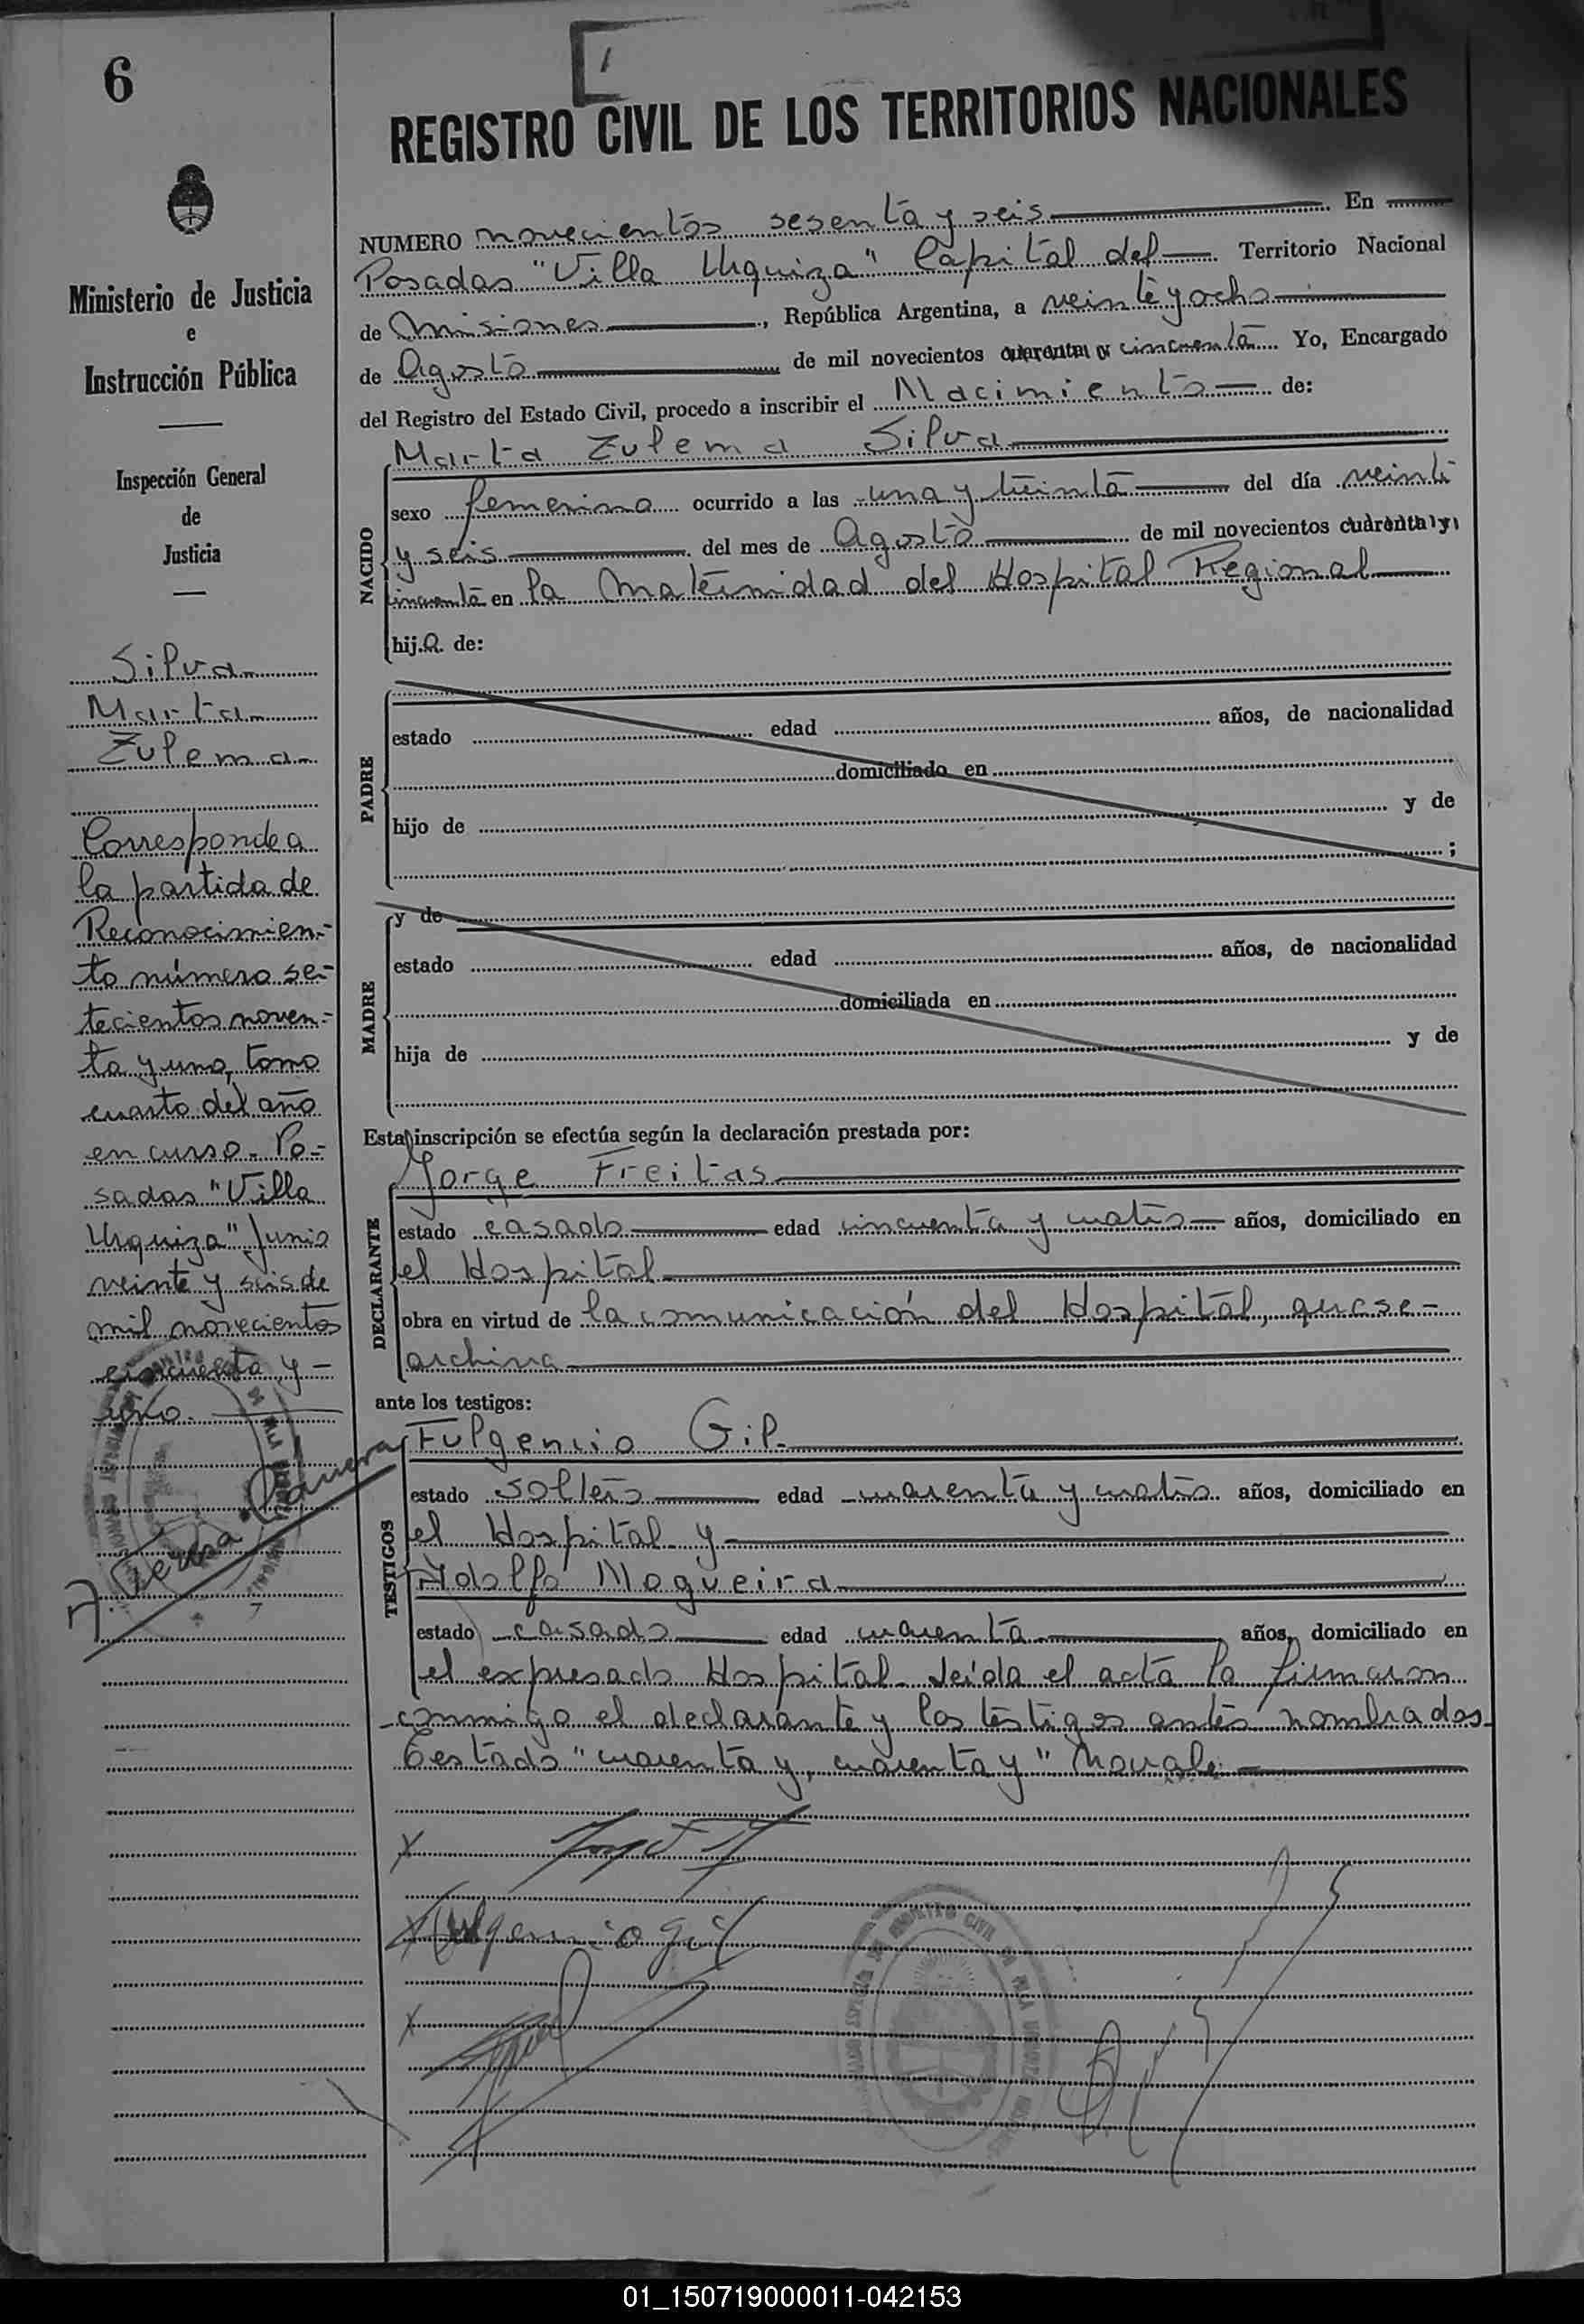 6
1
REGISTRO CIVIL DE LOS TERRITORIOS NACIONALES
Ministerio de Justicia
e
Instrucción Pública
Inspección General
de
Justicia
Silva
Marta
Zulema
Corresponde a
la partida de
Reconocimien-
to número se-
tecientos noven-
ta y uno, tomo
cuarto del año
en curso. Po-
sadas "Villa
Urquiza" Junio
veinte y seis de
mil novecientos
cincuenta y
uno.
NUMERO novecientos sesenta y seis En
Posadas "Villa Urquiza" Capital del Territorio Nacional
de Misiones, República Argentina, a veinte y ocho
de Agosto de mil novecientos cuarenta y cincuenta Yo, Encargado
del Registro del Estado Civil, procedo a inscribir el Nacimiento de:
Marta Zulema Silva
NACIDO
sexo femenino ocurrido a las una y treinta del día veinte
y seis del mes de Agosto de mil novecientos cuarenta y
cincuenta en la Maternidad del Hospital Regional
hija de:
PADRE
estado edad años, de nacionalidad
domiciliado en
hijo de y de
;
MADRE
y de
estado edad años, de nacionalidad
domiciliada en
hija de y de
Esta inscripción se efectúa según la declaración prestada por:
Jorge Freitas
DECLARANTE
estado casado edad cincuenta y cuatro años, domiciliado en
el Hospital
obra en virtud de la comunicación del Hospital, que se
archiva
ante los testigos:
Fulgencio Gil
TESTIGOS
estado soltero edad cuarenta y cuatro años, domiciliado en
el Hospital y
Adolfo Nogueira
estado casado edad cuarenta años, domiciliado en
el expresado Hospital. Leída el acta la firmaron
conmigo el declarante y los testigos antes nombrados
Testado "cuarenta y, cuarenta y" No vale
x
x Fulgencio Gil
x
01_150719000011-042153